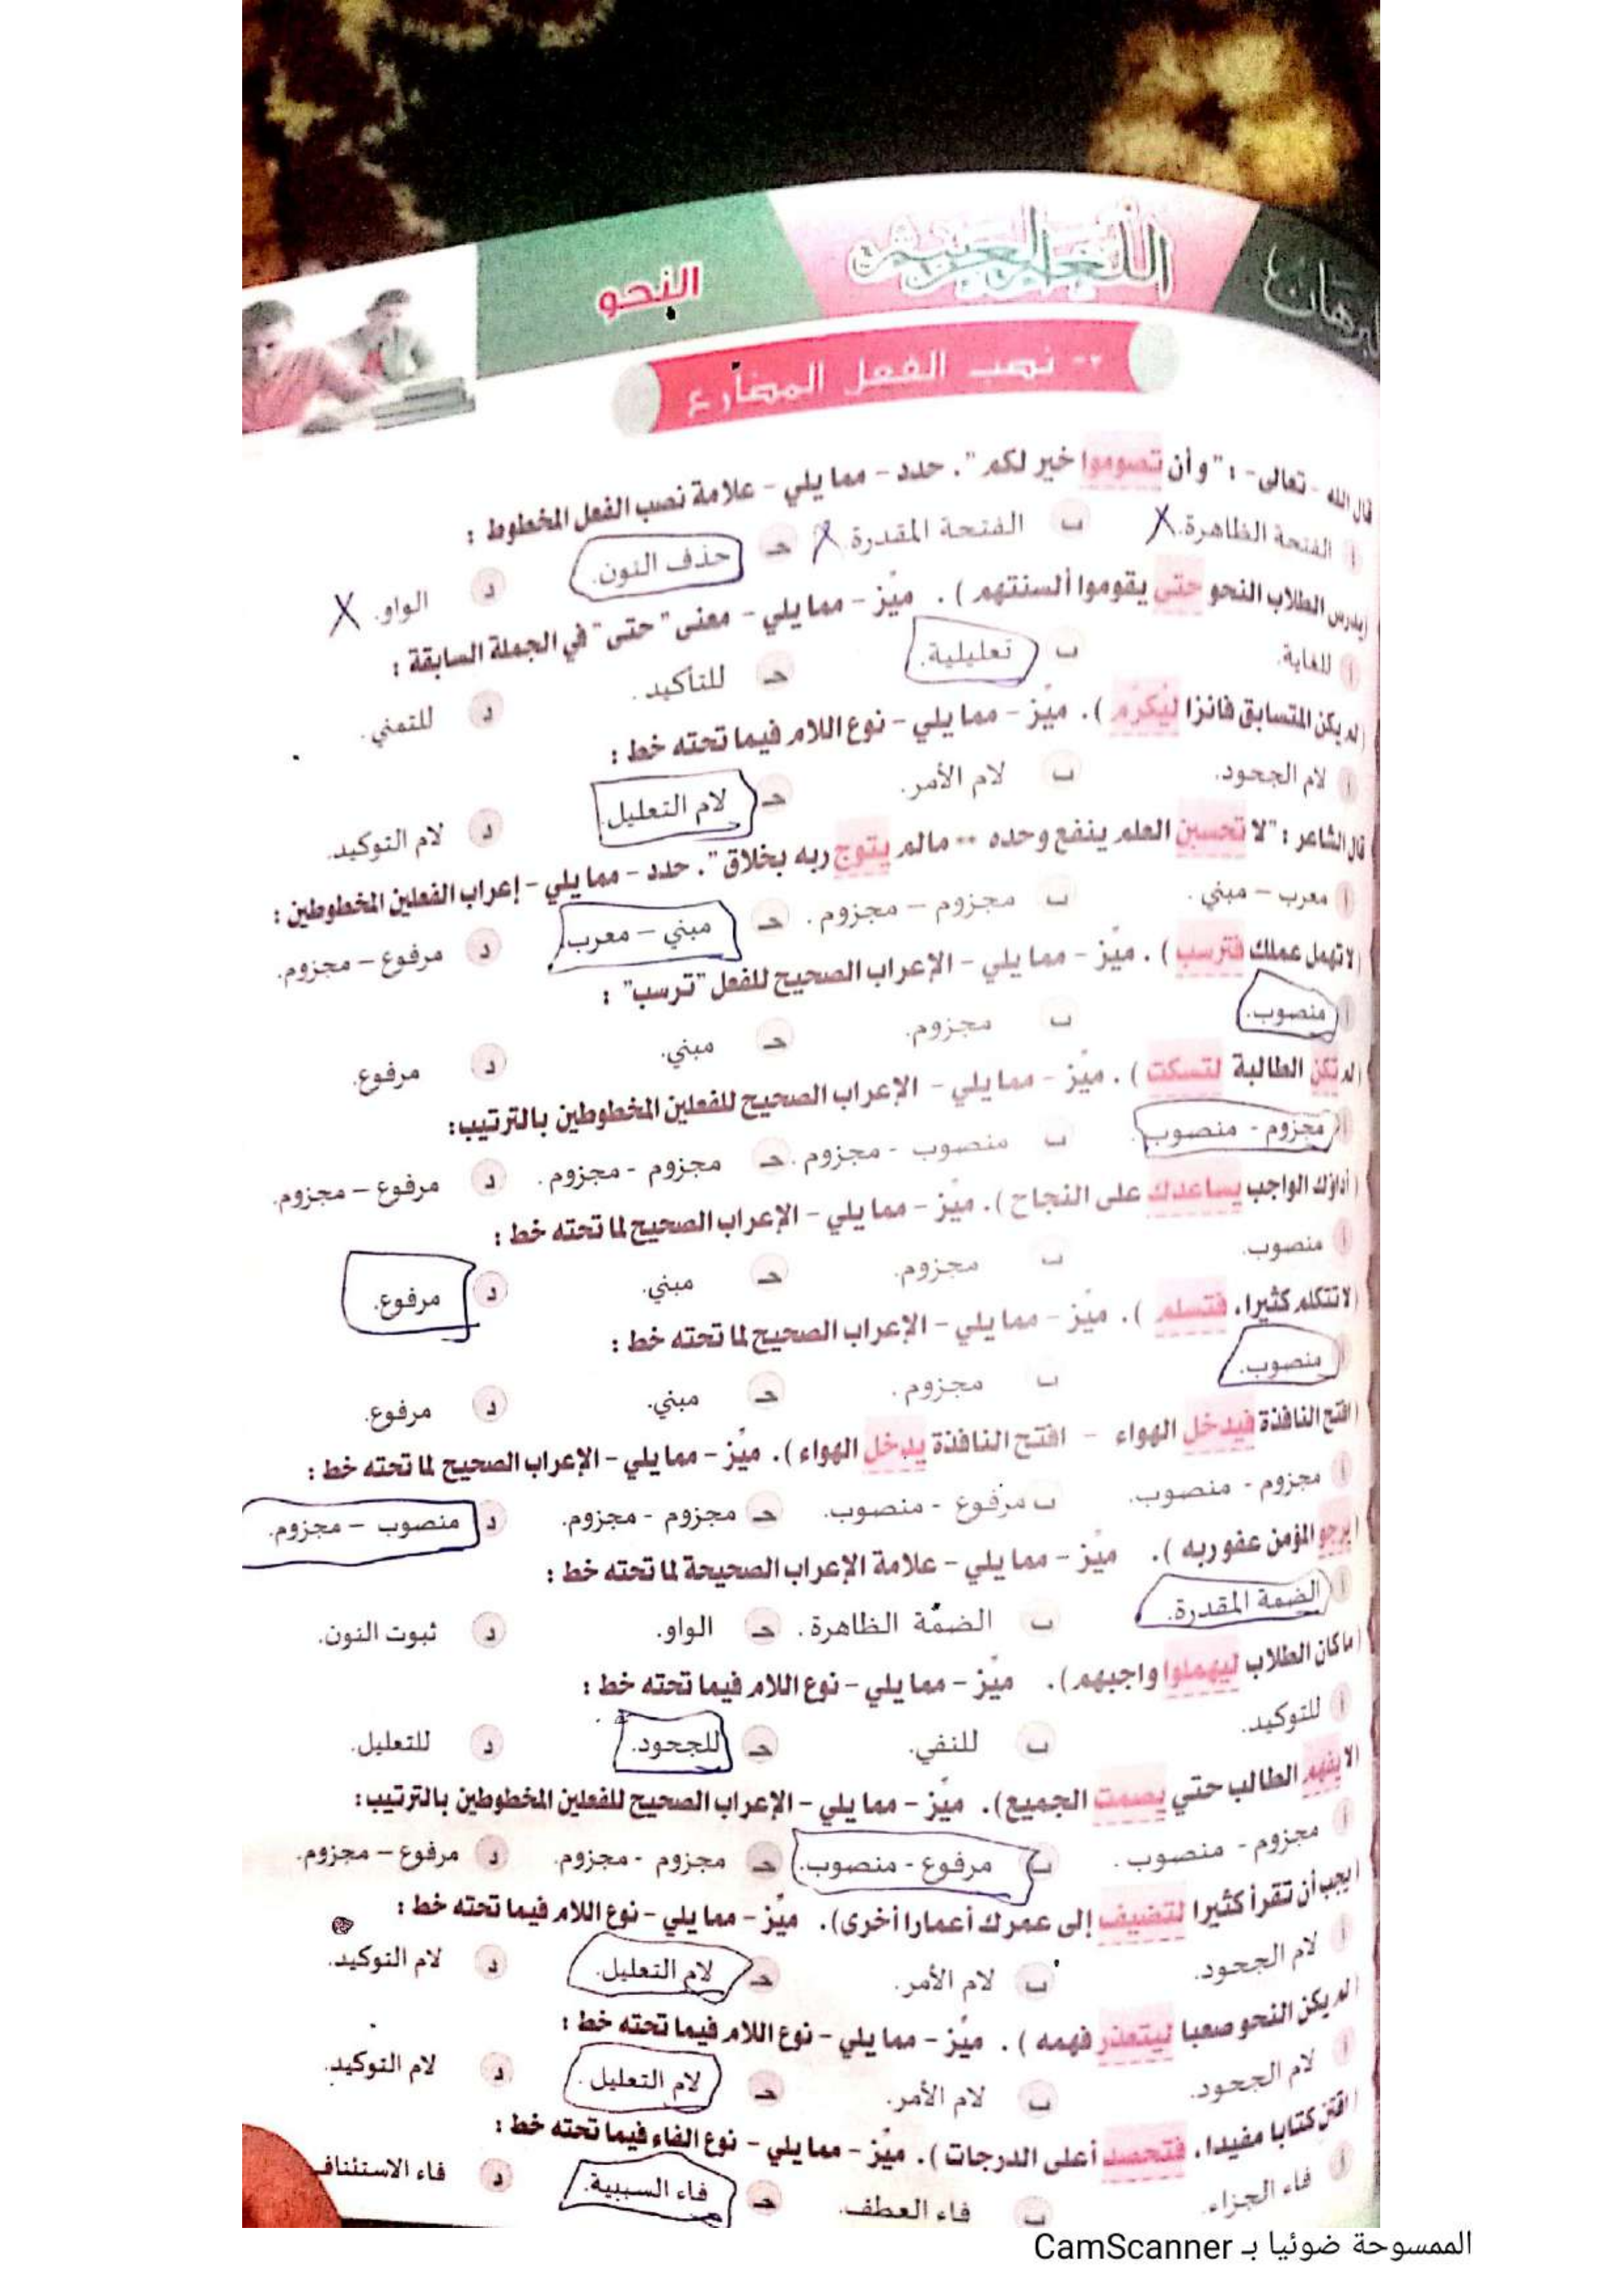 برهان
اللغة العربية
النحو
٢- نصب الفعل المضارع
قال الله - تعالى - : "وأن تصوموا خير لكم". حدد - مما يلي - علامة نصب الفعل المخطوط :
أ الفتحة الظاهرة. X ب الفتحة المقدرة. X حـ حذف النون. د الواو. X
(يدرس الطلاب النحو حتى يقوموا ألسنتهم ). ميّز - مما يلي - معنى "حتى" في الجملة السابقة :
أ للغاية. ب تعليلية. حـ للتأكيد. د للتمني.
(لم يكن المتسابق فائزا ليكرم ). ميّز - مما يلي - نوع اللام فيما تحته خط :
أ لام الجحود. ب لام الأمر. حـ لام التعليل. د لام التوكيد.
قال الشاعر : "لا تحسبن العلم ينفع وحده ** مالم يتوج ربه بخلاق". حدد - مما يلي - إعراب الفعلين المخطوطين :
أ معرب - مبني. ب مجزوم - مجزوم. حـ مبني - معرب. د مرفوع - مجزوم.
(لا تهمل عملك فترسب ). ميّز - مما يلي - الإعراب الصحيح للفعل "ترسب" :
أ منصوب. ب مجزوم. حـ مبني. د مرفوع.
(لم تكن الطالبة لتسكت ). ميّز - مما يلي - الإعراب الصحيح للفعلين المخطوطين بالترتيب:
أ مجزوم - منصوب. ب منصوب - مجزوم. حـ مجزوم - مجزوم. د مرفوع - مجزوم.
(أداؤك الواجب يساعدك على النجاح ). ميّز - مما يلي - الإعراب الصحيح لما تحته خط :
أ منصوب. ب مجزوم. حـ مبني. د مرفوع.
(لا تتكلم كثيرا، فتسلم ). ميّز - مما يلي - الإعراب الصحيح لما تحته خط :
أ منصوب. ب مجزوم. حـ مبني. د مرفوع.
(افتح النافذة فيدخل الهواء - افتح النافذة يدخل الهواء ). ميّز - مما يلي - الإعراب الصحيح لما تحته خط :
أ مجزوم - منصوب. ب مرفوع - منصوب. حـ مجزوم - مجزوم. د منصوب - مجزوم.
(يرجو المؤمن عفو ربه ). ميّز - مما يلي - علامة الإعراب الصحيحة لما تحته خط :
أ الضمة المقدرة. ب الضمّة الظاهرة. حـ الواو. د ثبوت النون.
(ما كان الطلاب ليهملوا واجبهم). ميّز - مما يلي - نوع اللام فيما تحته خط :
أ للتوكيد. ب للنفي. حـ للجحود. د للتعليل.
(لا يفهم الطالب حتي يصمت الجميع). ميّز - مما يلي - الإعراب الصحيح للفعلين المخطوطين بالترتيب:
أ مجزوم - منصوب. ب مرفوع - منصوب. حـ مجزوم - مجزوم. د مرفوع - مجزوم.
(يجب أن تقرأ كثيرا لتضيف إلى عمرك أعمارا أخرى). ميّز - مما يلي - نوع اللام فيما تحته خط :
أ لام الجحود. ب لام الأمر. حـ لام التعليل. د لام التوكيد.
(لم يكن النحو صعبا ليتعذر فهمه ). ميّز - مما يلي - نوع اللام فيما تحته خط :
أ لام الجحود. ب لام الأمر. حـ لام التعليل. د لام التوكيد.
(اقتن كتابا مفيدا، فتحصد أعلى الدرجات ). ميّز - مما يلي - نوع الفاء فيما تحته خط :
أ فاء الجزاء. ب فاء العطف. حـ فاء السببية. د فاء الاستئناف
الممسوحة ضوئيا بـ CamScanner